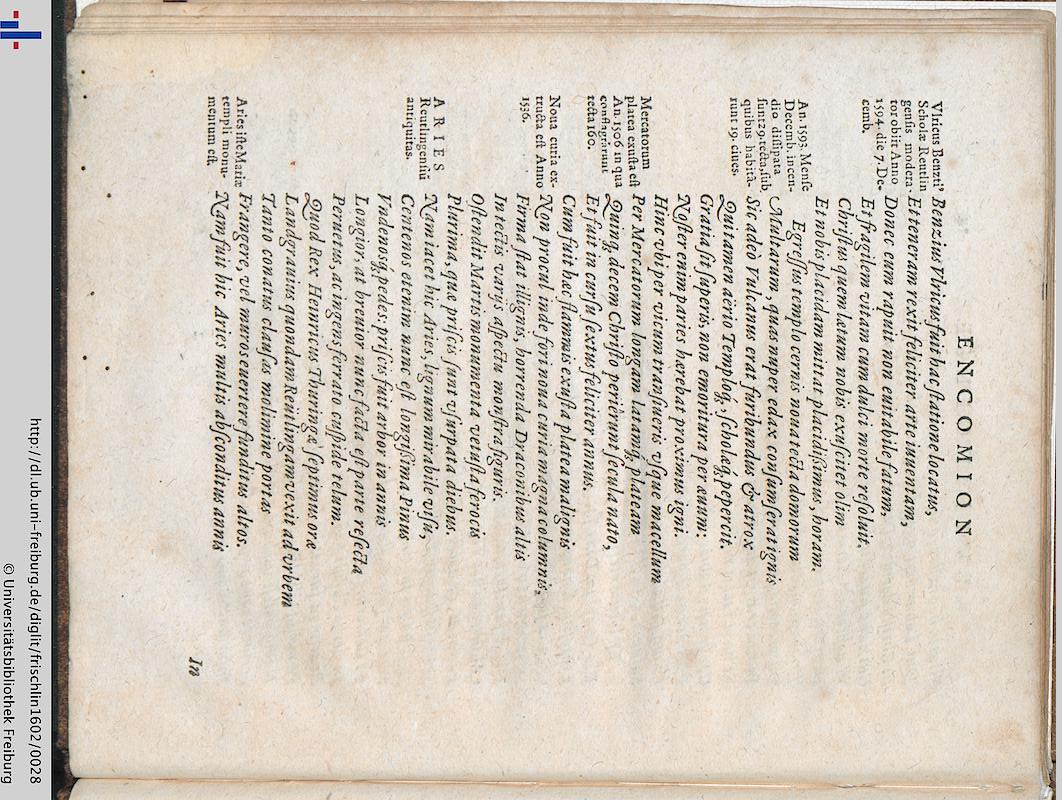 ENCOMION
Vlricus Benzti9
Scholæ Reutlin
gensis modera-
tor obiit Anno
1594. die 7. De-
cemb.
An. 1593. Mense
Decemb. incen-
dio dissipata
sunt 29. tecta, sub
quibus habitâ-
runt 19. ciues.
Mercatorum
platea exusta est
An. 1506 in qua
conflagrarunt
tecta 160.
Noua curia ex-
tructa est Anno
1536.
ARIES
Reutlingensiũ
antiquitas.
Aries iste Mariæ
templi monu-
mentum est.
Benzius Vlricus fuit hac statione locatus,
Et teneram rexit feliciter arte iuuentam,
Donec eum rapuit non euitabile fatum,
Et fragilem vitam cum dulci morte resoluit.
Christus quem lætum nobis exuscitet olim
Et nobis placidam mittat placidissimus, horam.
Egressus templo cernis noua tecta domorum
Multarum, quas nuper edax consumserat ignis
Sic adeò Vulcanus erat furibundus & atrox
Qui tamen aërio Temploq́, scholæq́ pepercit.
Gratia sit superis, non emoritura per æuum:
Noster enim paries hærebat proximus igni.
Hinc vbi per vicum transiueris vsque macellum
Per Mercatorum longam latamq́ plateam
Quinq, decem Christo periêrunt secula nato,
Et fuit in cursu sextus feliciter annus.
Cum fuit hæc flammis exusta platea malignis
Non procul inde fori noua curia magna columnis,
Firma stat ilignis, horrenda Draconibus altis
In tectis varijs aspectu monstra figuris.
Ostendit Martis monumenta vetusta ferocis
Plurima, quæ priscis sunt vsurpata diebus.
Nam iacet hic Aries, lignum mirabile visu,
Centenos etenim nunc est longissima Pinus
Vndenosq́; pedes, priscis fuit arbor in annis
Longior, at breuior nunc facta est parte resecta
Peruetus, ac ingens ferrato cuspide telum.
Quod Rex Heinricus Thuringæ septimus oræ
Landgrauius quondam Reütlingam vexit ad vrbem
Tanto conatus clausas molimine portas
Frangere, vel muros euertere funditus altos.
Nam fuit hic Aries multis absconditus annis
In
http://dl.ub.uni-freiburg.de/diglit/frischlin1602/0028
© Universitätsbibliothek Freiburg